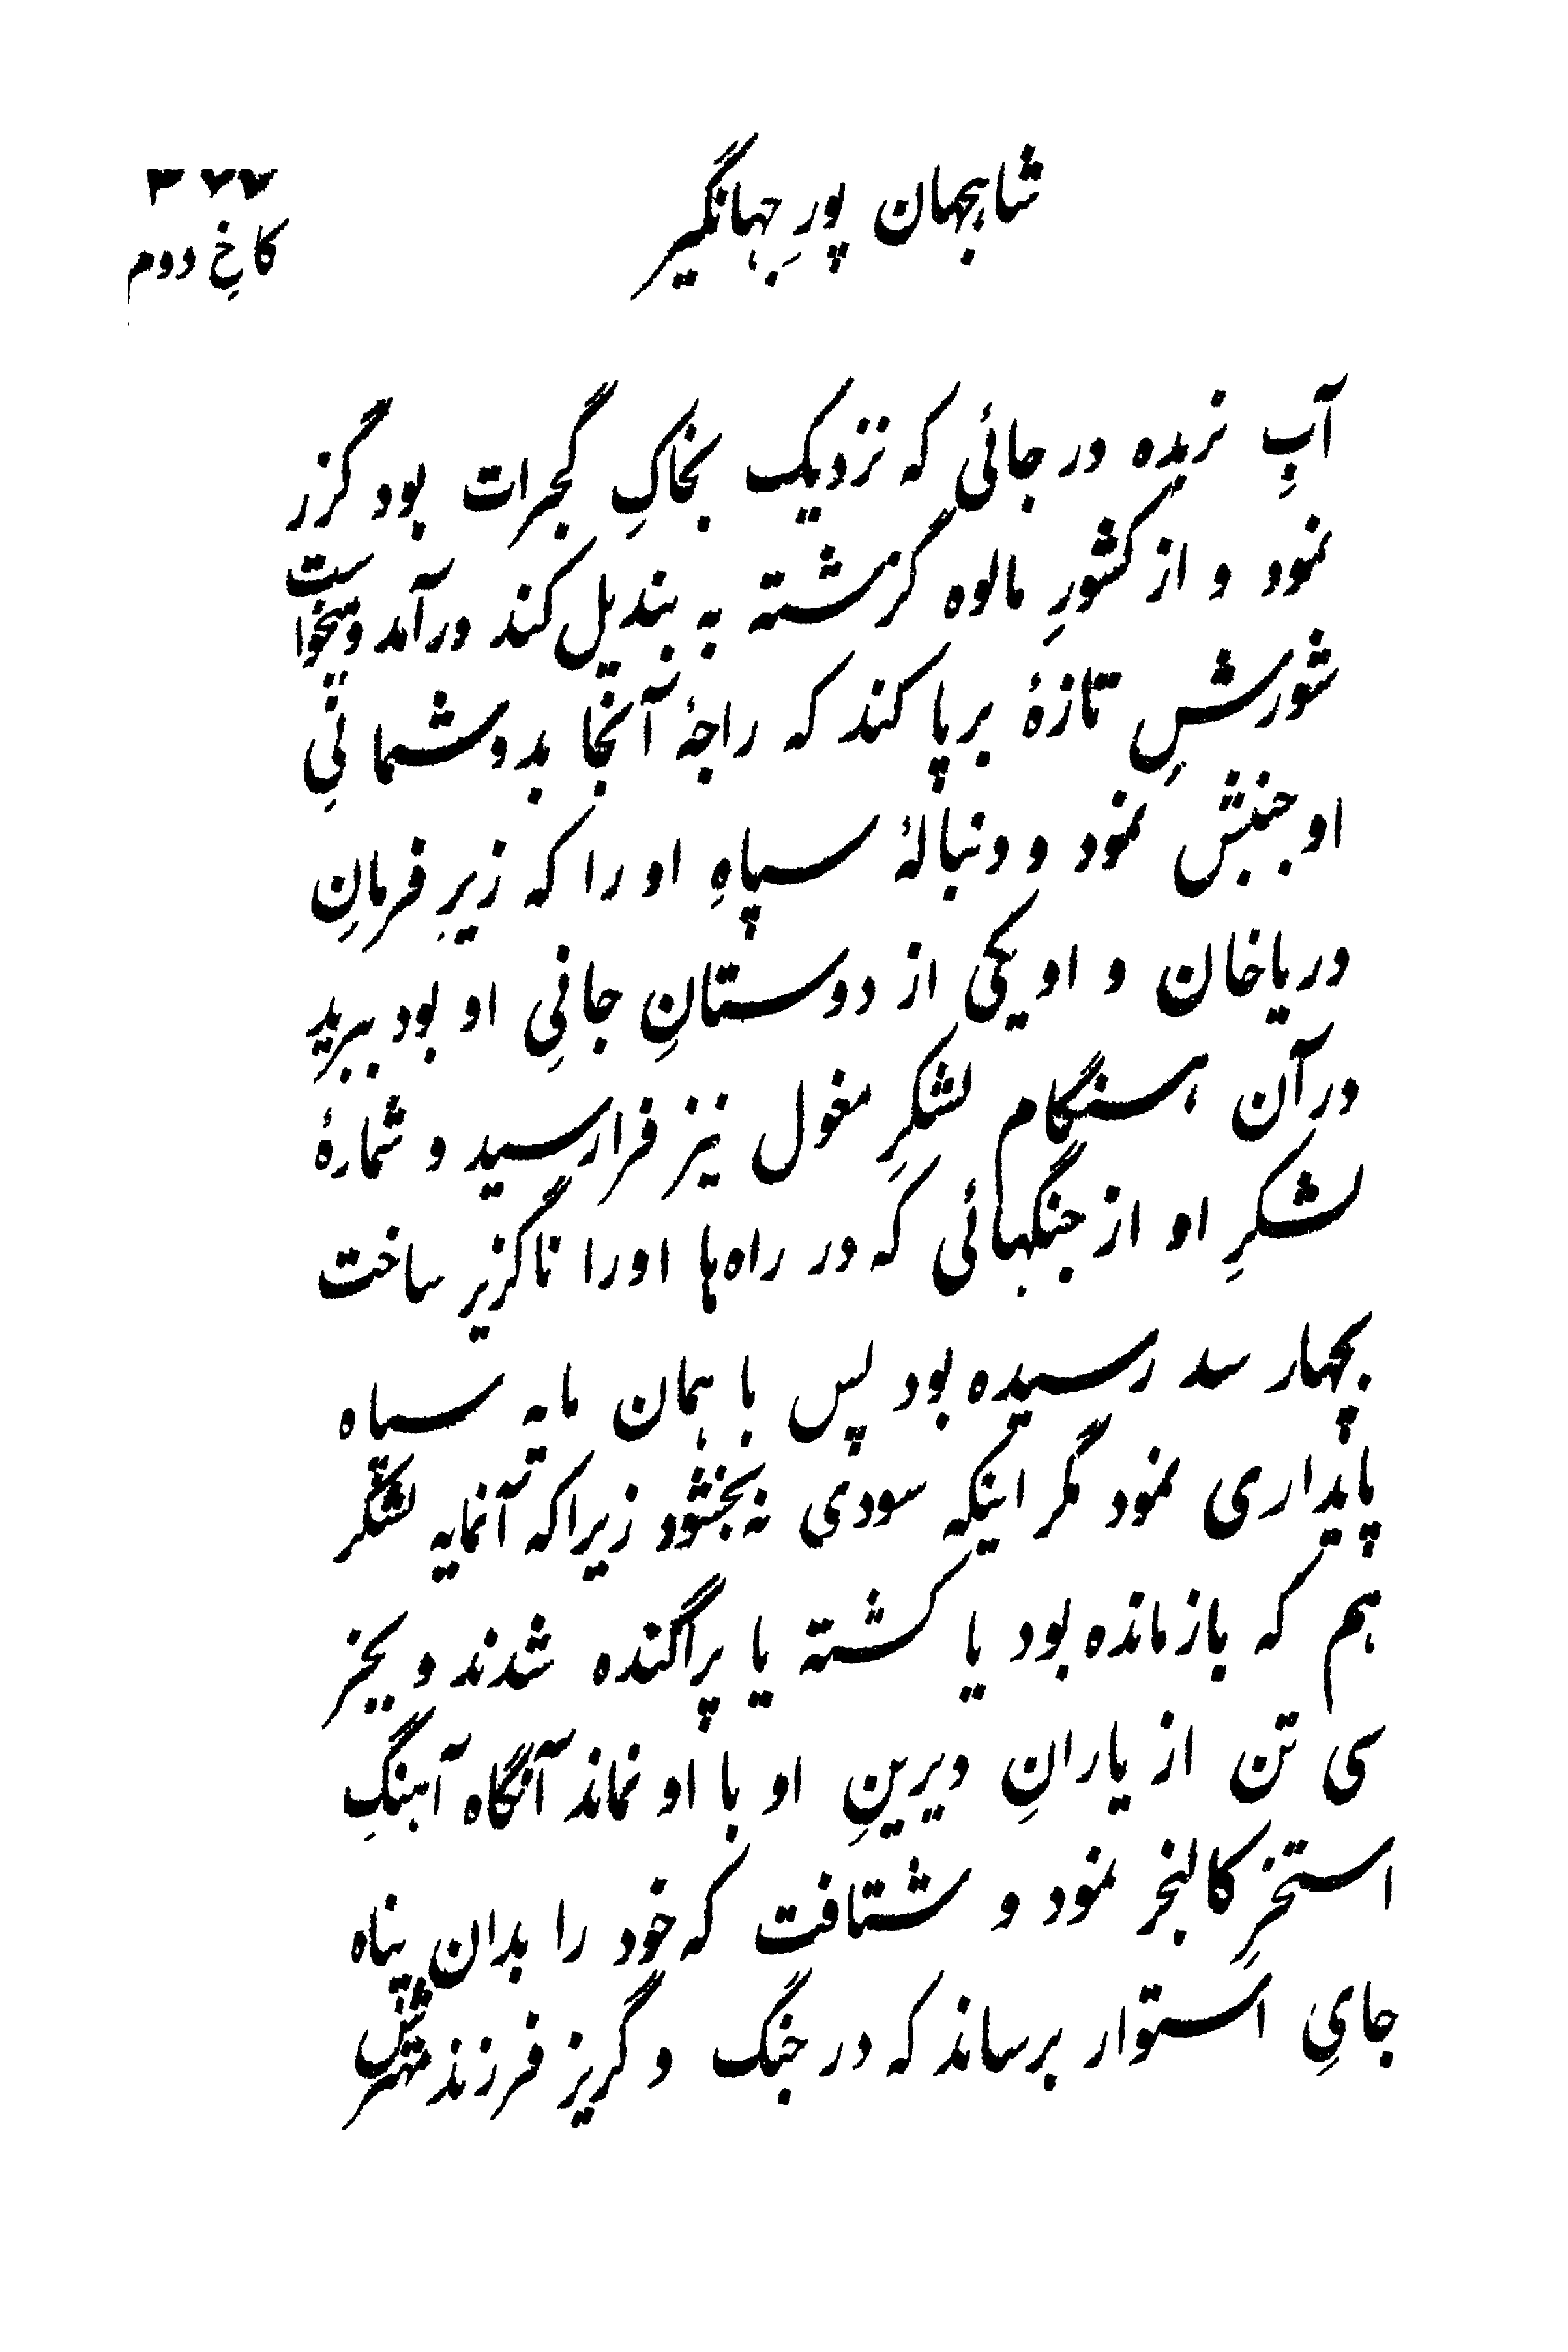 شاہجہان پورِ جہانگیر
۳۷۷
کاخِ دوم
آبِ نربده در جائی که نزدیک بخاکِ گجرات بود گزر
نمود و از کشورِ مالوه گزشته به بندیل کند درآمد و میخواست
شورشِ تازهٔ برپا کند که راجهٔ آنجا بدوشمانیِ
او جنبش نمود و دنبالهٔ سپاهِ او را که زیرِ فرمانِ
دریاخان و او یکی از دوستانِ جانیِ او بود ببرید
در آن هنگام لشکرِ مغول نیز فرا رسید و شمارهٔ
لشکرِ او از جنگهائی که در راه ها او را ناگزیر ساخت
بچهار سد رسیده بود پس با همان مایه سپاه
پایداری نمود مگر اینکه سودی نه بخشود زیرا که آنمایه لشکر
هم که بازمانده بود یا کشته یا پراگنده شدند و بجز
سی تن از یارانِ دیرینِ او با او نماند آنگاه آهنگِ
استخرِ کالنجر نمود و شتافت که خود را بدان پناه
جایِ استوار برساند که در جنگ و گریز فرزند مهترش